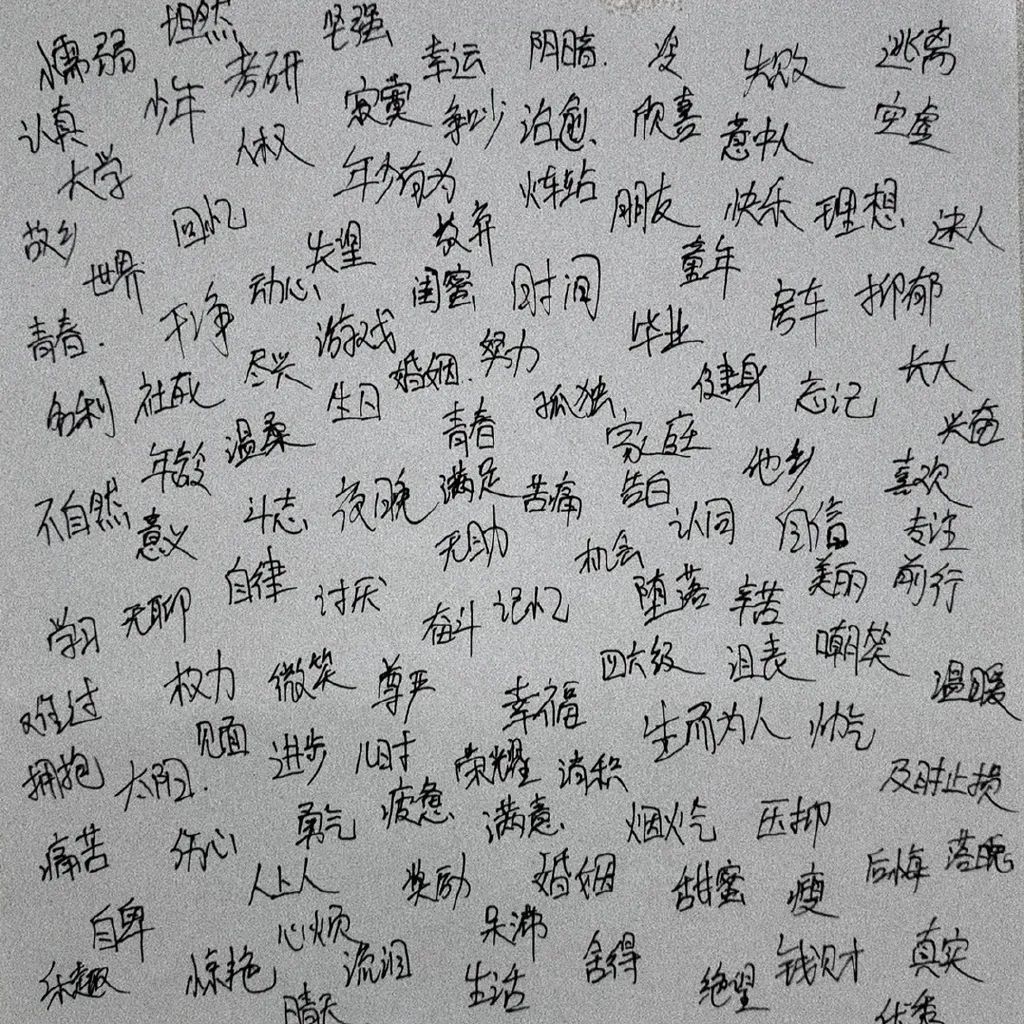 懦弱 坦然 坚强 幸运 阴暗. 失败 逃离
认真 少年 考研 寂寞 争吵 治愈 欣喜 意中人 空虚
大学 人权 年少有为 火车站 朋友 快乐 理想 迷人
故乡 回忆 失望 放弃 童年
世界 动心 闺蜜 时间 房车 抑郁
青春. 干净 游戏 努力 毕业
名利 社死 尽兴 生日 婚姻. 孤独 健身 忘记 长大
年龄 温柔 青春 家庭 他乡 兴奋
不自然 意义 斗志 夜晚 满足 苦痛 告白 认同 自信 喜欢 专注
学习 无聊 自律 讨厌 无助 机会 堕落 辛苦 美丽 前行
奋斗 记忆
难过 权力 微笑 尊严 幸福 四六级 嘲笑 温暖
拥抱 太阳. 见面 进步 儿时 荣耀 消积 生而为人 帅气 及时止损
痛苦 伤心 勇气 疲惫 满意 烟火气 压抑 后悔 落魄
人上人 奖励 婚姻 甜蜜 瘦
自卑 心烦 呆滞 舍得 钱财 真实
乐趣 惊艳 流泪 生活 绝望
晴天 优秀